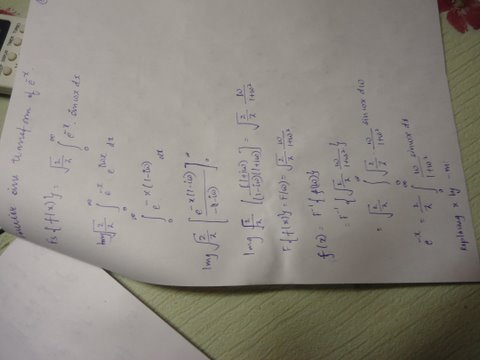 sine transform of e^-x
Fs{f(x)} = √(2/π) ∫_0^∞ e^-x sinωx dx
Img √(2/π) ∫_0^∞ e^-x e^iωx dx
∫_0^∞ e^-x(1-iω) dx
Img √(2/π) [e^-x(1-iω) / -(1-iω)]_0^∞
Img √(2/π) [(1+iω) / (1-iω)(1+iω)] = √(2/π) ω/(1+ω²)
F{f(x)} = F(ω) = √(2/π) ω/(1+ω²)
f(x) = F^-1{f(ω)}
= F^-1{√(2/π) ω/(1+ω²)}
= √(2/π) ∫_0^∞ √(2/π) ω/(1+ω²) sinωx dω
e^-x = 2/π ∫_0^∞ ω/(1+ω²) sinωx dx
Replacing x by -m